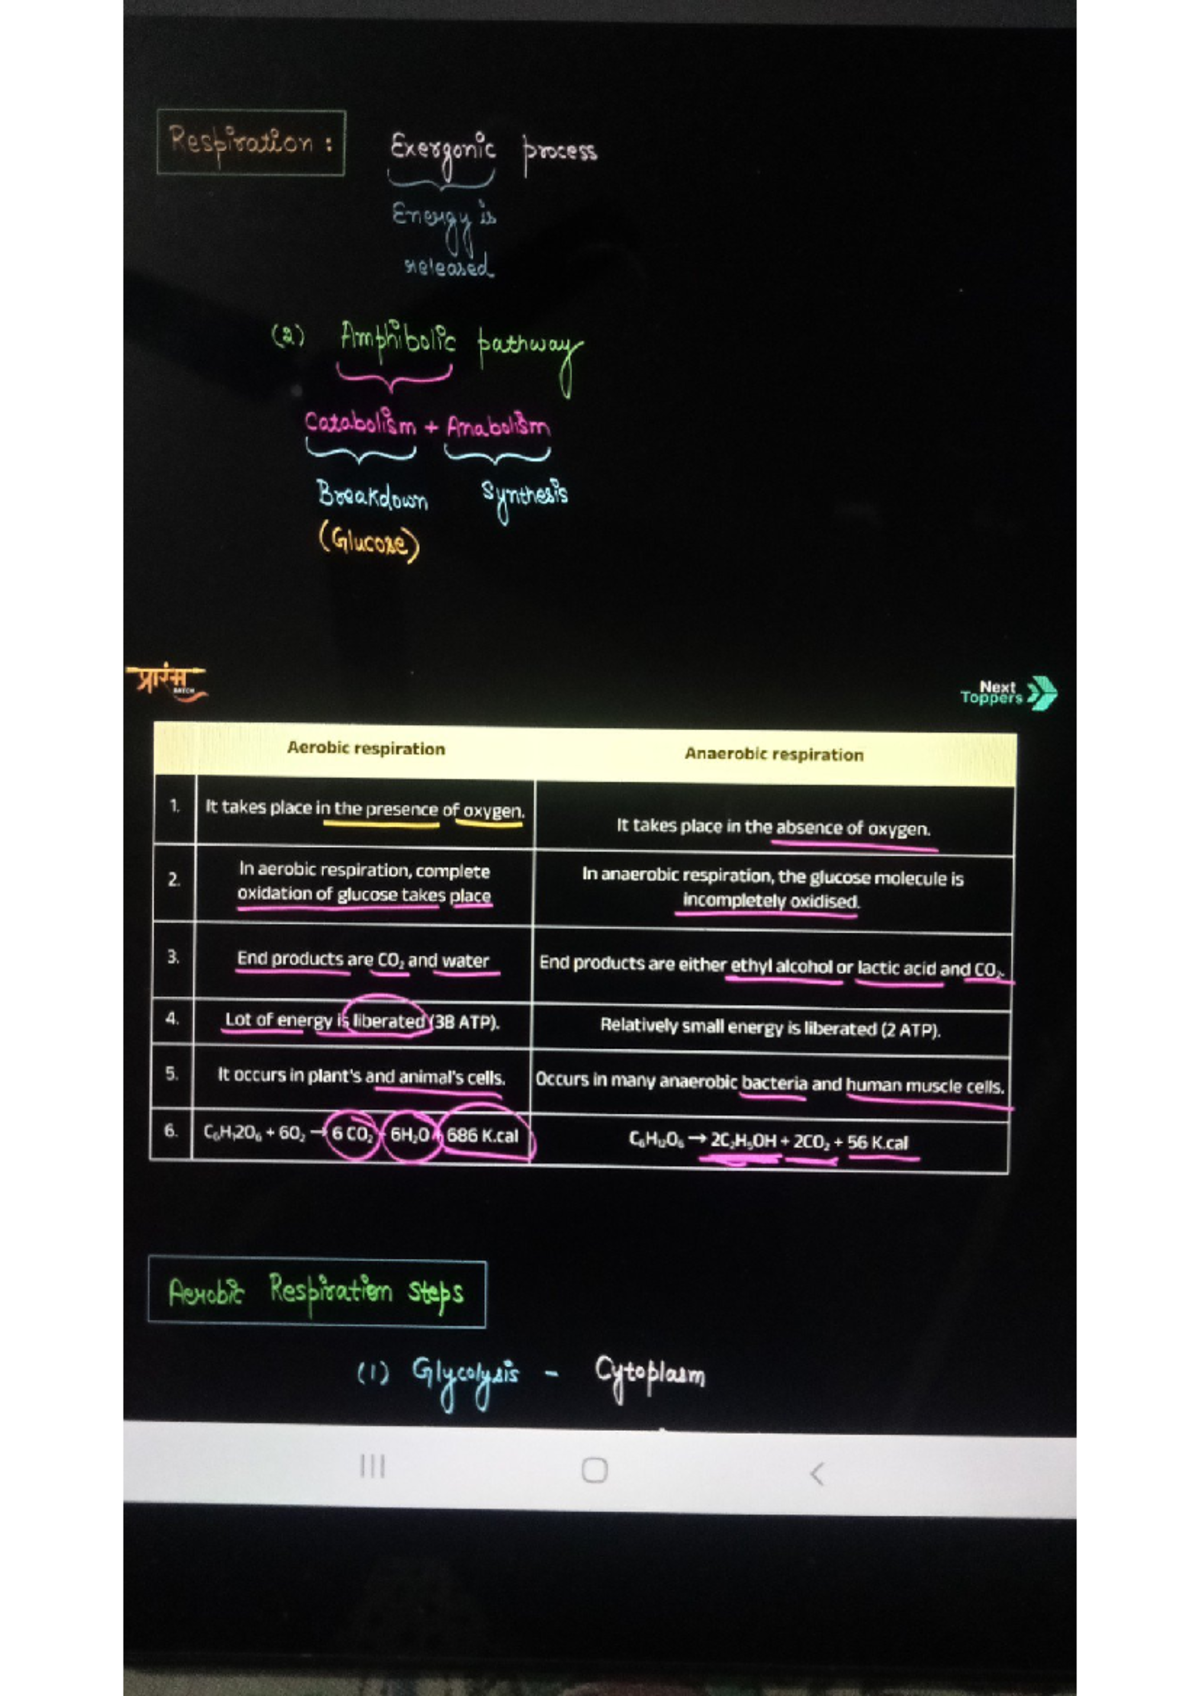 Respiration :
Exergonic process
Energy is
released
(2) Amphibolic pathway
Catabolism + Anabolism
Breakdown Synthesis
(Glucose)
प्रारंभ
BATCH
Next
Toppers
Aerobic respiration Anaerobic respiration
1. It takes place in the presence of oxygen. It takes place in the absence of oxygen.
2. In aerobic respiration, complete
oxidation of glucose takes place
In anaerobic respiration, the glucose molecule is
incompletely oxidised.
3. End products are CO₂ and water End products are either ethyl alcohol or lactic acid and CO₂.
4. Lot of energy is liberated (38 ATP). Relatively small energy is liberated (2 ATP).
5. It occurs in plant's and animal's cells. Occurs in many anaerobic bacteria and human muscle cells.
6. C₆H₁2O₆ + 6O₂ → 6 CO₂ + 6H₂O + 686 K.cal C₆H₁₂O₆ → 2C₂H₅OH + 2CO₂ + 56 K.cal
Aerobic Respiration Steps
(1) Glycolysis - Cytoplasm